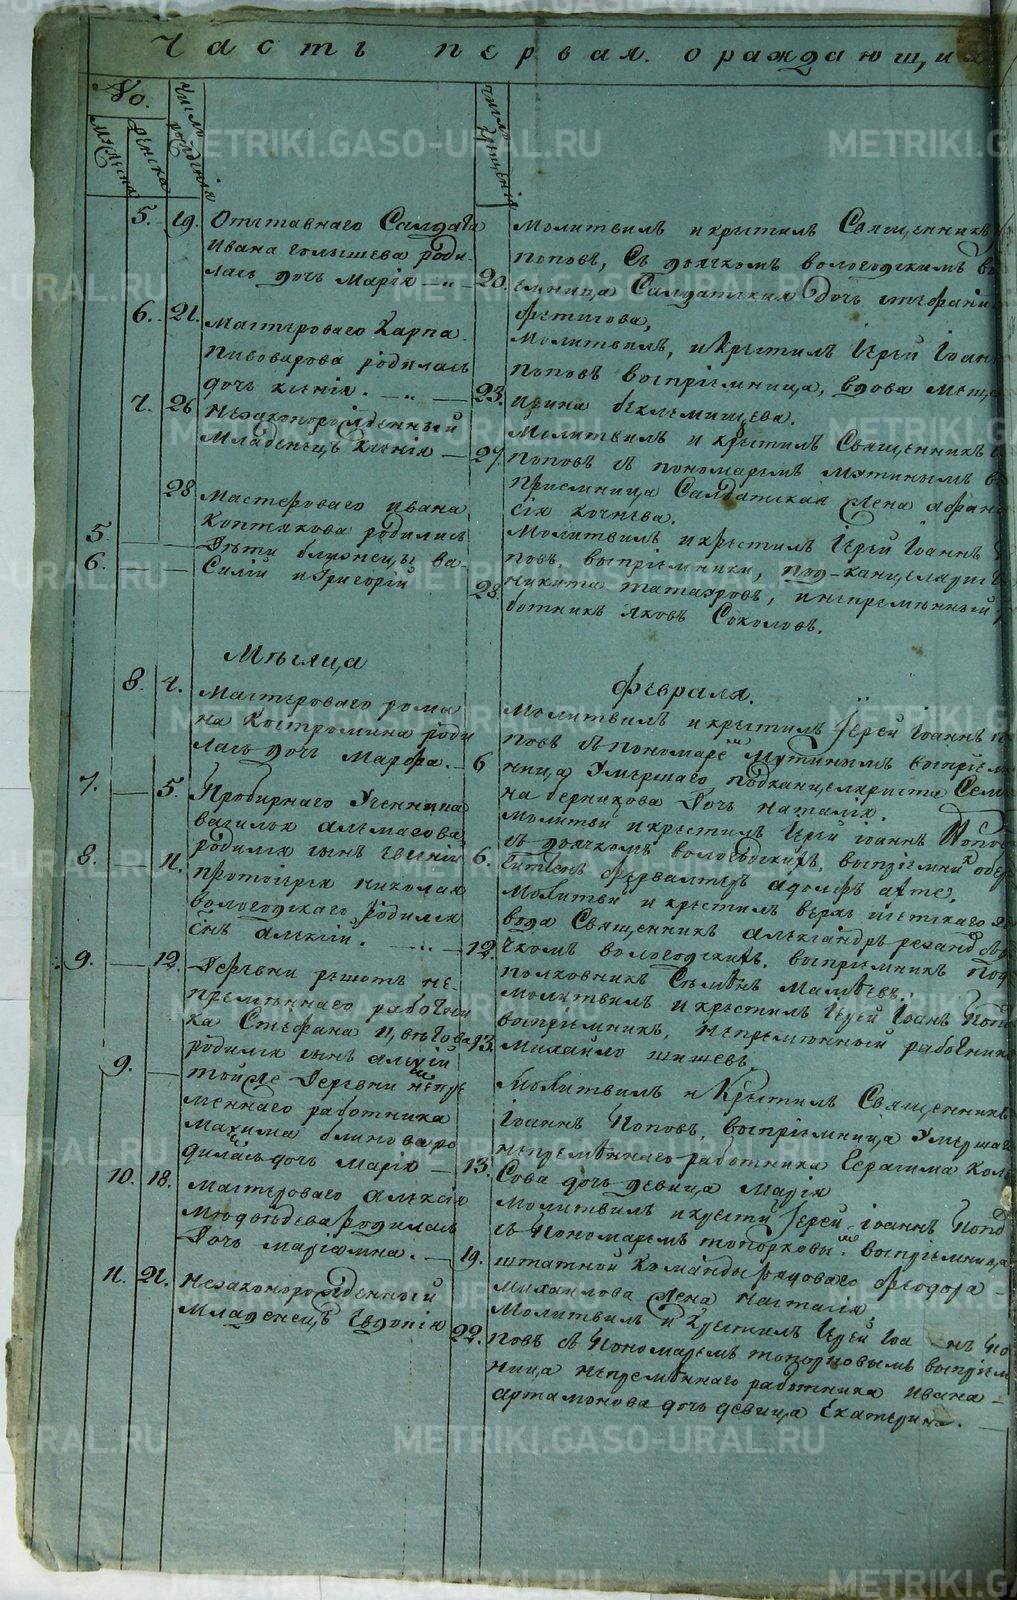 Часть первая. о раждающи
No.
Мужеска
Женска
Число рожденія
Число крещенія
5. 19. Отставнаго Салдата
Ивана Голышева роди-
лась дочь Марія
20.
Молитвилъ и крестилъ Священникъ
Поповъ, съ дьячкомъ Вологодскимъ
емница Салдатская дочь Стефани
Фетисова,
6. 21. Мастероваго Карпа
Пивоварова родилась
дочь Ксенія.
23.
Молитвилъ, и крестилъ Іерей Іоан
Поповъ воспріемница, вдова
Ирина Беклемищева.
7. 26 Незаконорожденный
Младенецъ Ксенія
27.
Молитвилъ и крестилъ Священникъ
Поповъ съ пономаремъ Мутинымъ
пріемница Салдатская жена Афана
сія Кочнева.
28 Мастероваго Ивана
Коптякова родились
5. Дѣти близнецы Ва-
6. силій и Григорій
28.
Молитвилъ и крестилъ Іерей Іоаннъ
повъ воспріемники, под-канцеляристъ
Никита Татауровъ, и непремѣнный
ботникъ Яковъ Соколовъ.
Мѣсяца
Февраля.
8. 4. Мастероваго Рома
на Костромина роди
лась дочь Марфа.
6
Молитвилъ и крестилъ Іерей Іоаннъ П
повъ съ пономаремъ Мутинымъ воспріем
ница Умершаго подканцеляриста Семе
на Берникова дочь Наталія.
7. 5. Пробирнаго Ученника
Василья Алмасова
родился сынъ Евгеній
6.
Молитви и крестилъ Іерей Іоаннъ Попо
съ дьячкомъ Вологодскимъ, воспріемни обер
Адолфъ
8. 11. Протоіерея Николая
Вологодскаго родился
сынъ Алексій.
12.
Молитви и крестилъ Верхъ Исетскаго За
вода Священникъ Александръ съ дья
чкомъ Вологодскимъ. воспріемникъ Под
полковникъ
9. 12. Деревни Решотъ не-
премѣннаго работни
ка Стефана
родился сынъ Алексій
13.
Молитвилъ и крестилъ Іерей Іоанъ Попо
воспріемникъ, непремѣнный работникъ
Михайло Шишевъ
9. той же Деревни непре
меннаго работника
Махима Блинова ро
дилась дочь Марія
13.
Молитвилъ и Крестилъ Священникъ
Іоаннъ Поповъ, воспріемница Умерша
непремѣннаго работника Герасима Кол
сова дочь девица Марія
10. 18. Мастероваго Алексія
Медвѣдева родилась
Дочь Маріамна.
19.
Молитвилъ и крести Іерей Іоаннъ Попо
съ Пономаремъ Топорковымъ. воспріемница
штатной Команды рядоваго Феодора
Михаилова жена Настасія
11. 21. Незаконорожденной
Младенецъ Евдокія
22.
Молитвилъ и Крестилъ Іерей Іоаннъ По
повъ съ Пономаремъ Топорковымъ воспріем
ница непремѣннаго работника Ивана
Артамонова дочь девица Екатерина.
METRIKI.GASO-URAL.RU